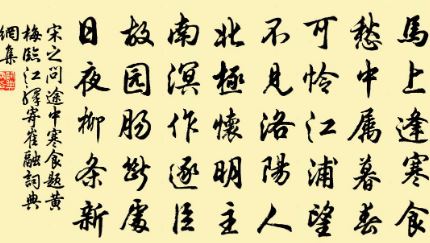 馬上逢寒食
愁中属暮春
可怜江浦望
不見洛陽人
北極懷明主
南溟作逐臣
故园肠斷處
日夜柳条新
宋之问途中寒食題黄
梅臨江驛寄崔融詞典
網集